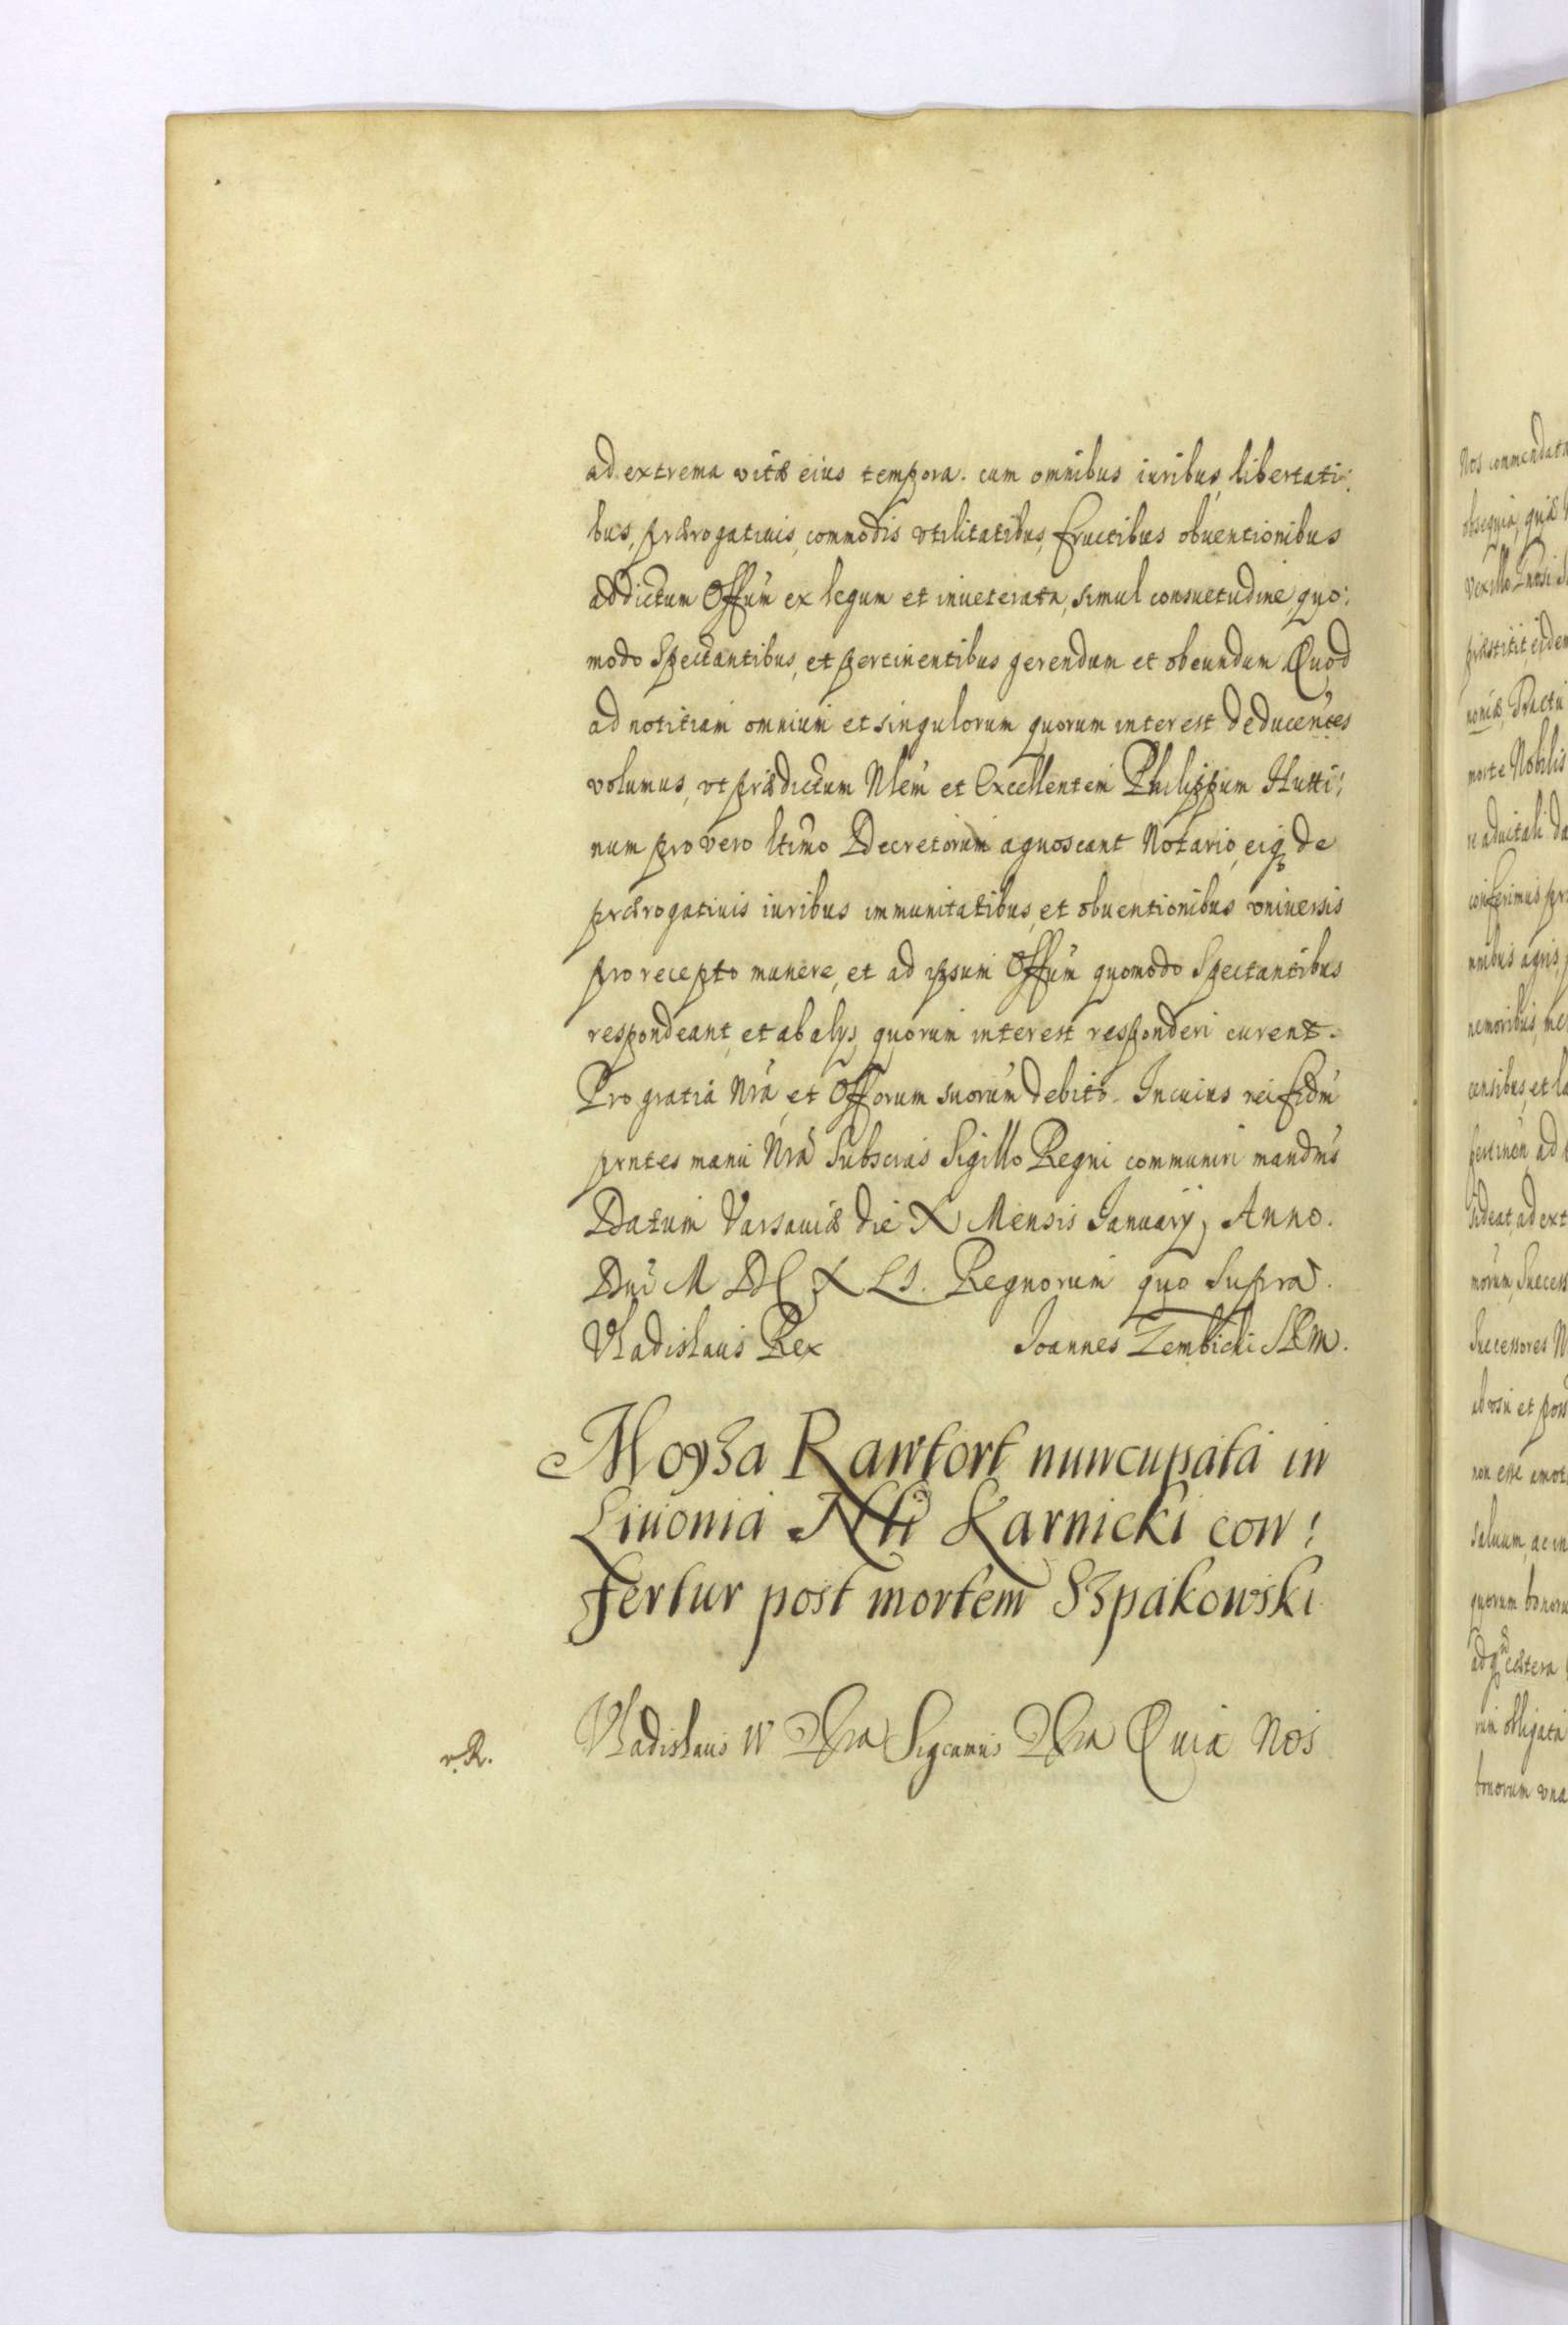 ad extrema vitæ eius tempora. cum omnibus iuribus, libertati:
bus, prærogatiuis, commodis vtilitatibus, fructibus obuentionibus
ad dictum Offum ex legum et inueterata, simul consuetudine quo:
modo Spectantibus, et pertinentibus gerendum et obeundum Quod
ad notitiam omnium et singulorum quorum interest deducentes
volumus, vt prædictum Nlem et Excellentem Philippum Hutti:
num pro vero ltimo Decretorum agnoscant Notario, eiq de
prærogatiuis iuribus immunitatibus, et obuentionibus vniuersis
pro recepto munere, et ad ipsum Offum quomodo Spectantibus
respondeant, et ab alys, quorum interest responderi curent.
Pro gratia Nra, et Offorum suorum debito. In cuius rei fidm
prntes manu Nra Subscras Sigillo Regni communiri mandms
Datum Varsauiæ die X Mensis Ianuarij, Anno.
Dni M DC X LI. Regnorum quo Supra.
Vladislaus Rex Ioannes Zembicki SRM.
Moyza Rawtort nuncupata in
Liuonia Nli Karnicki con:
fertur post mortem Szpakowski
v.R. Vladislaus IV Dgra Sigcamus Dgra Quia Nos
Nos commendata
obsequia, quæ
Vexillo
præstitit, eidem
noniæ,
morte Nobilis
re aduitali
conferimus
nibus agris
nemoribus,
censibus, et
ad
ad ext
Success
Successores N
ab vsu et poss
non esse
saluum, ac in
quorum bonoru
cætera
obligata
bonorum vna